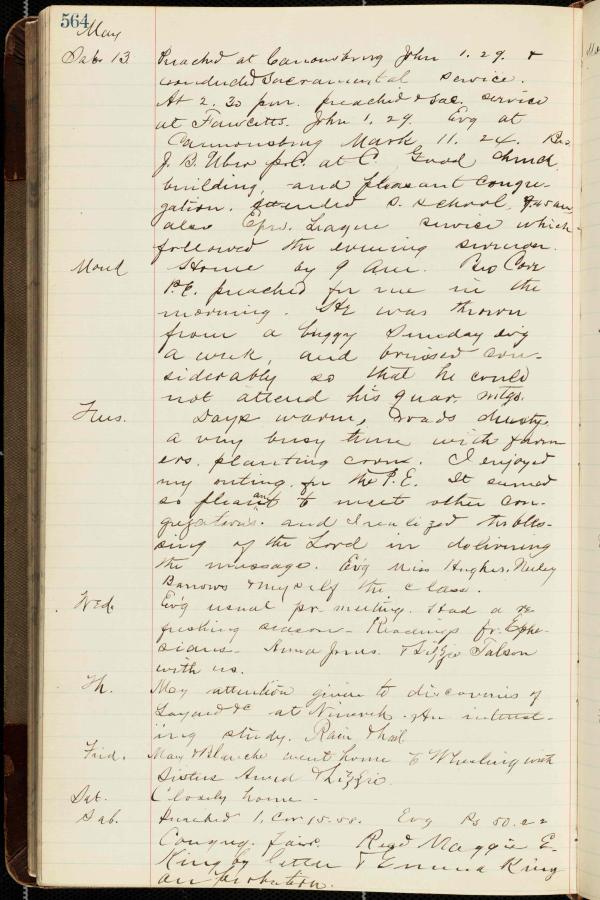 564
May
Sab. 13. Preached at Canonsburg John 1.29. &
conducted Sacramental service.
At 2.30 pm. preached & Sac. service
at Fawcetts. John 1.29. Evg at
Cannonsburg Mark 11.24. Bro
J. B. Uber p.C. at C. Good church
building, and pleasant congre-
gation. Attended S. school, 9.45 am,
also Epw. League service which
followed the evening sermon.
Mond Home by 9 am. Bro Corr
P.E. preached for me in the
morning. He was thrown
from a buggy Sunday evg
a week, and bruised con-
siderably so that he could
not attend his quar. mtgs.
Tues. Days warm, roads dusty
a very busy time with farm
ers. planting corn. I enjoyed
my outing for the P.E. It seemed
so pleasant to meet other con-
gregations. and I realized the bles-
sing of the Lord in delivering
the message. Evg Miss Hughes, Neeley
Barrows & myself the class.
Wed. Evg usual pr. meeting. Had a re-
freshing season - Readings fr. Ephe-
sians - Anna Jones & Lizzie Talson
with us.
Th. May attention given to discoveries of
Layard &c at Nineveh. An interest-
ing study. Rain & hail
Frid. May & Blanche went home to Wheeling with
Sisters Anna & Lizzie.
Sat. Closely home -
Sab. Preached 1. Cor. 15.58. Evg Ps 50.22
Congreg. fair. Recd Maggie E.
King by letter & Emma King
on probation.